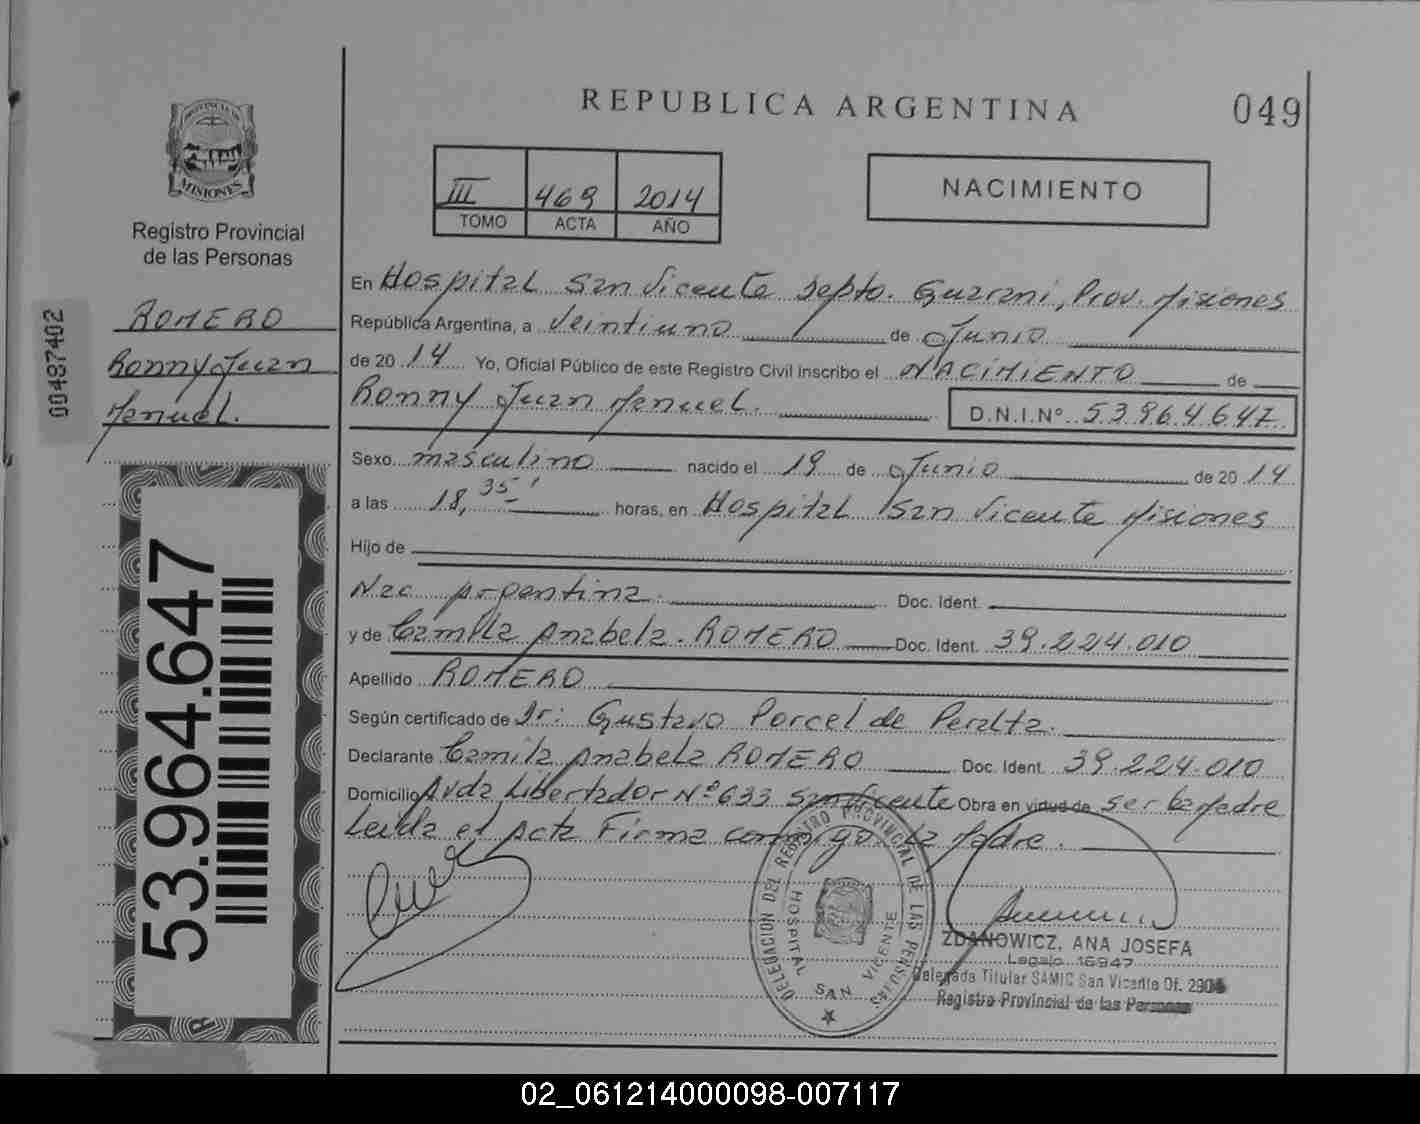 REPUBLICA ARGENTINA
049
PROVINCIA DE
MISIONES
Registro Provincial
de las Personas
III 469 2014
TOMO ACTA AÑO
NACIMIENTO
00487402
ROMERO
Ronny Juan
Manuel.
53.964.647
En Hospital San Vicente Depto. Guarani, Prov. Misiones
República Argentina, a Veintiuno de Junio
de 20 14 Yo, Oficial Público de este Registro Civil inscribo el NACIMIENTO de
Ronny Juan Manuel. D.N.I.N° 53964647
Sexo masculino nacido el 19 de Junio de 20 14
a las 18,35' horas, en Hospital San Vicente Misiones
Hijo de
Nac Argentina. Doc. Ident.
y de Camila Anabela. ROMERO Doc. Ident. 39.224.010
Apellido ROMERO
Según certificado de Dr: Gustavo Porcel de Peralta.
Declarante Camila Anabela ROMERO Doc. Ident. 39.224.010
Domicilio Avda Libertador N° 633 San Vicente Obra en virtud de ser la Madre
Leida el Acta Firma conmigo la Madre.
DELEGACION DEL REGISTRO PROVINCIAL DE LAS PERSONAS
HOSPITAL SAN VICENTE
ZDANOWICZ, ANA JOSEFA
Legajo 16947
Delegada Titular SAMIC San Vicente Of.
Registro Provincial de las Personas
02_061214000098-007117